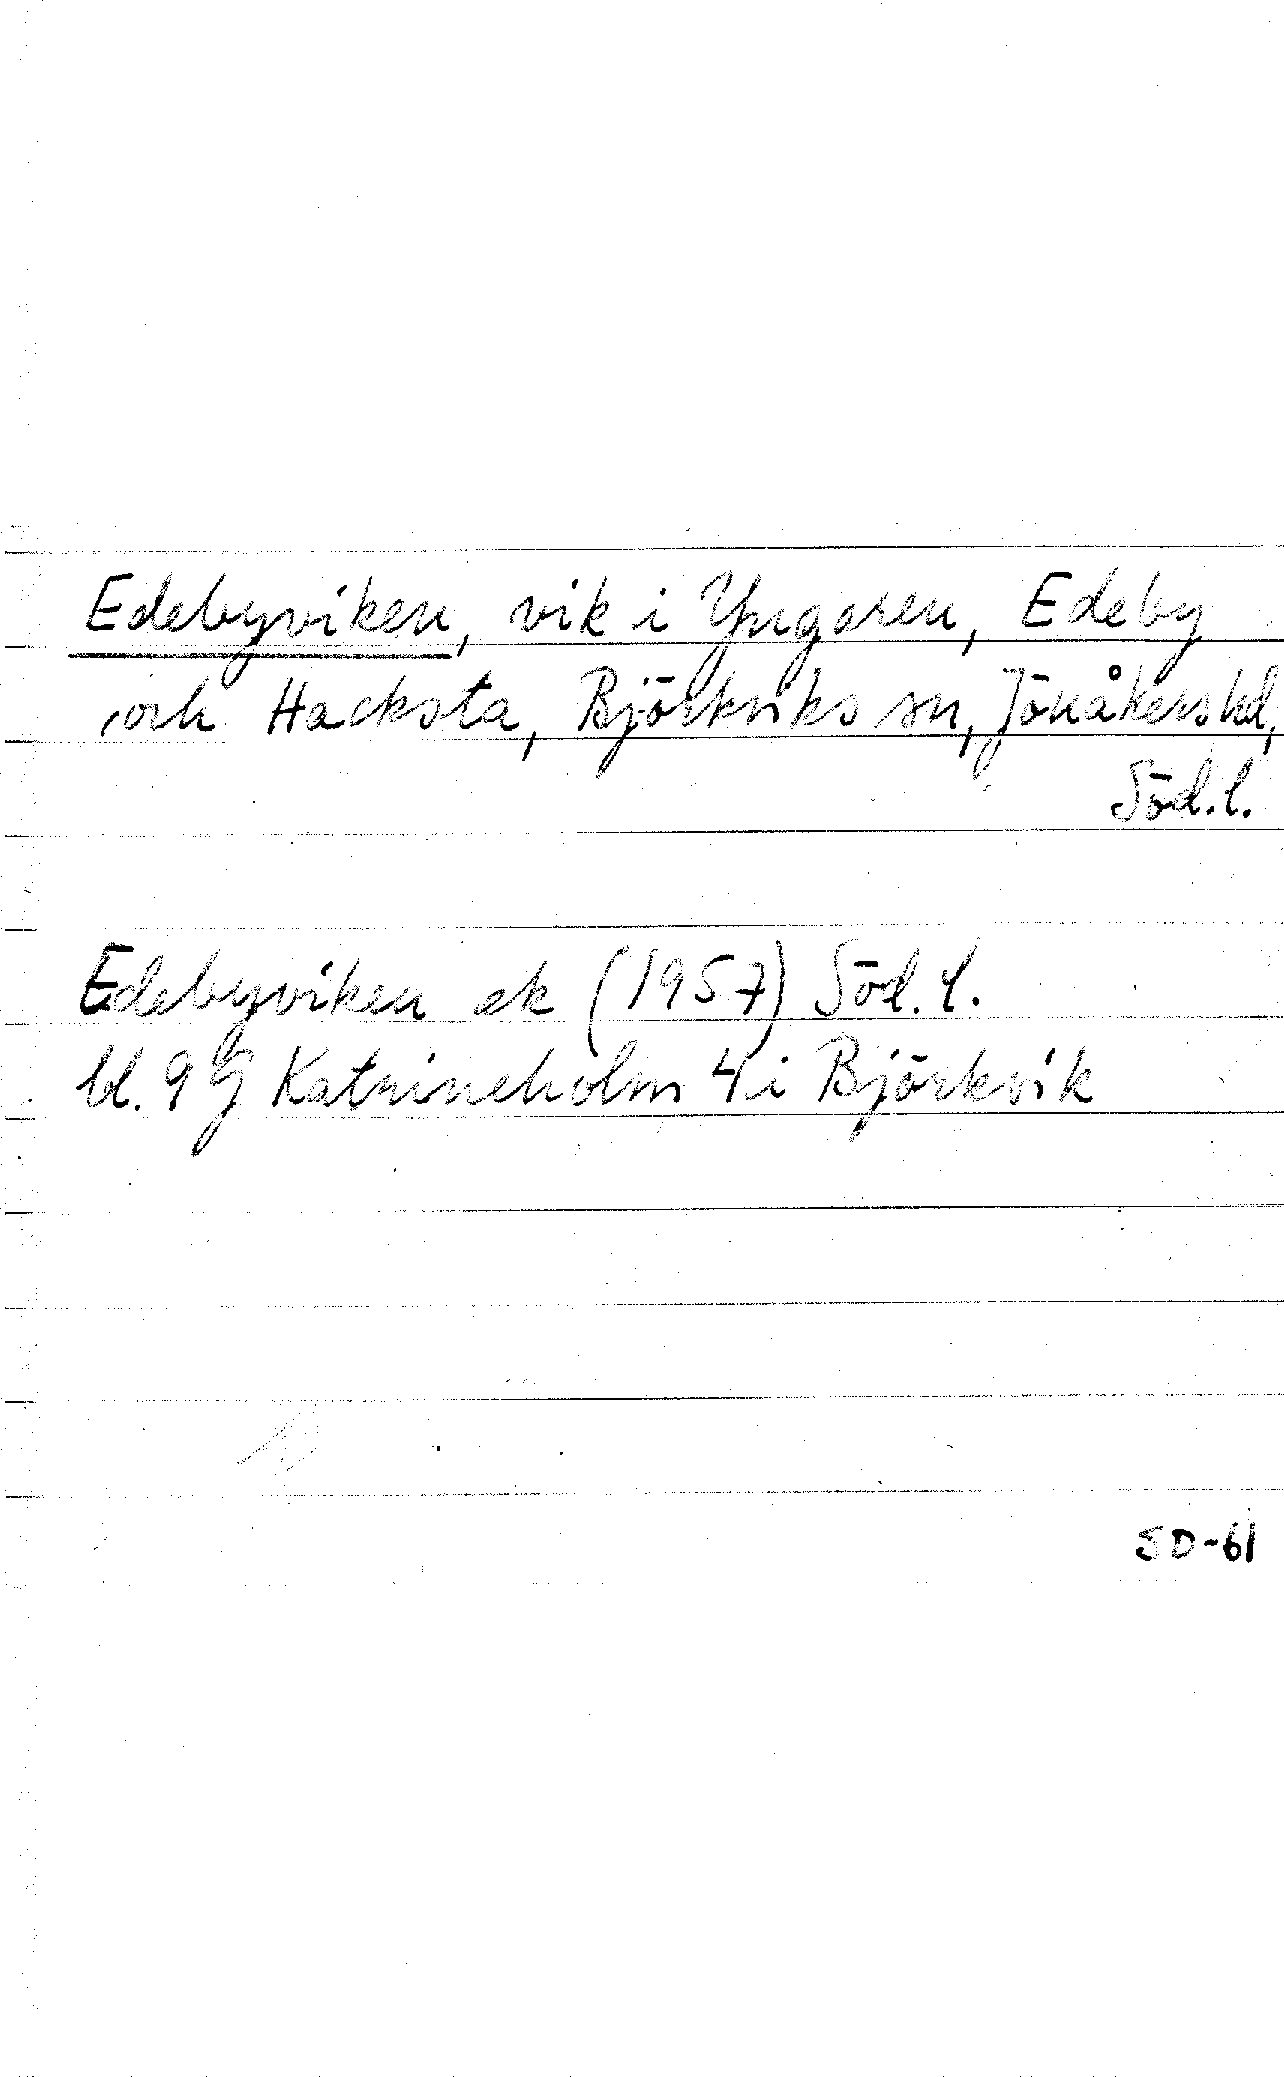 Edebyviken, vik i Yngaren, Edeby
och Hacksta, Björkviks sn, Jönåkers hd,
Söd.l.
Edebyviken ek (1957) Söd.l.
bl. 9G Katrineholm 4i Björkvik
SD-61